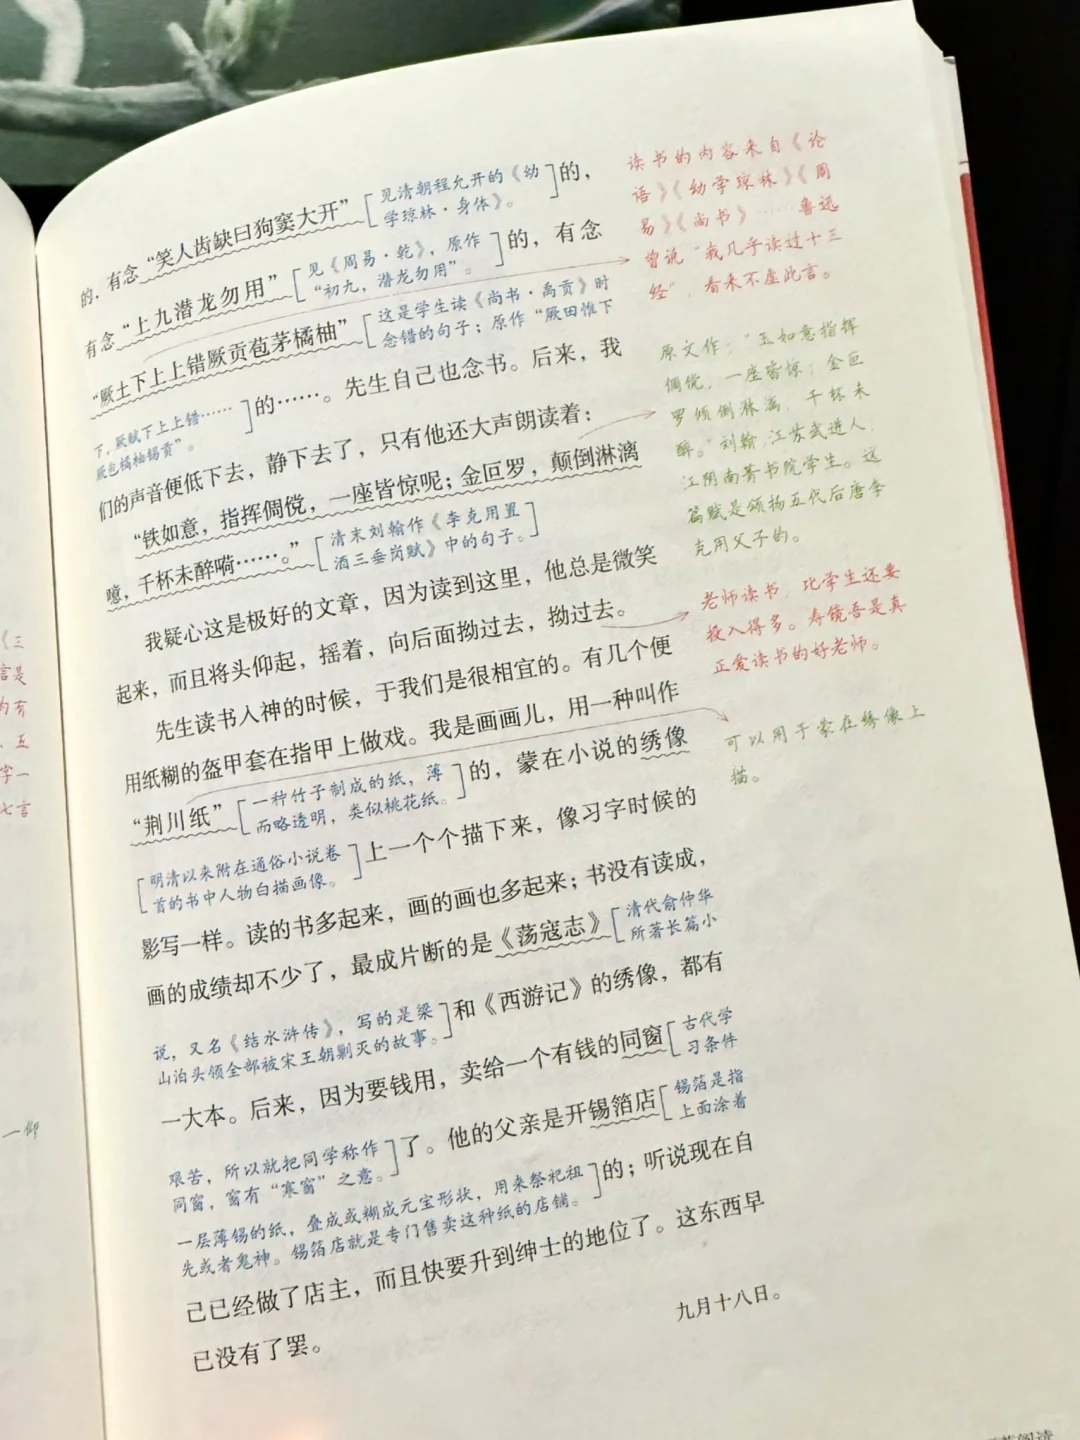 的，有念“笑人齿缺曰狗窦大开”[见清朝程允升的《幼学琼林·身体》。]的，
有念“上九潜龙勿用”[见《周易·乾》，原作“初九，潜龙勿用”。]的，有念
“厥土下上上错厥贡苞茅橘柚”[这是学生读《尚书·禹贡》时念错的句子；原作“厥田惟下
下，厥赋下上上错……厥包橘柚锡贡”。]的……。先生自己也念书。后来，我
们的声音便低下去，静下去了，只有他还大声朗读着：
“铁如意，指挥倜傥，一座皆惊呢；金叵罗，颠倒淋漓
噫，千杯未醉嗬……。”[清末刘翰作《李克用置酒三垂岗赋》中的句子。]
我疑心这是极好的文章，因为读到这里，他总是微笑
起来，而且将头仰起，摇着，向后面拗过去，拗过去。
先生读书入神的时候，于我们是很相宜的。有几个便
用纸糊的盔甲套在指甲上做戏。我是画画儿，用一种叫作
“荆川纸”[一种竹子制成的纸，薄而略透明，类似桃花纸。]的，蒙在小说的绣像
[明清以来附在通俗小说卷首的书中人物白描画像。]上一个个描下来，像习字时候的
影写一样。读的书多起来，画的画也多起来；书没有读成，
画的成绩却不少了，最成片断的是《荡寇志》[清代俞仲华所著长篇小
说，又名《结水浒传》，写的是梁山泊头领全部被宋王朝剿灭的故事。]和《西游记》的绣像，都有
一大本。后来，因为要钱用，卖给一个有钱的同窗[古代学习条件
艰苦，所以就把同学称作同窗，窗有“寒窗”之意。]了。他的父亲是开锡箔店[锡箔是指上面涂着
一层薄锡的纸，叠成或糊成元宝形状，用来祭祀祖先或者鬼神。锡箔店就是专门售卖这种纸的店铺。]的；听说现在自
己已经做了店主，而且快要升到绅士的地位了。这东西早
已没有了罢。
九月十八日。
读书的内容来自《论
语》《幼学琼林》《周
易》《尚书》……鲁迅
曾说“我几乎读过十三
经”，看来不虚此言。
原文作：“玉如意指挥
倜傥，一座皆惊；金叵
罗倾倒淋漓，千杯未
醉。”刘翰，江苏武进人，
江阴南菁书院学生。这
篇赋是颂扬五代后唐李
克用父子的。
老师读书，比学生还要
投入得多。寿镜吾是真
正爱读书的好老师。
可以用于蒙在绣像上
描。
《三
言是
为有
、五
字一
七言
一仰
阅读